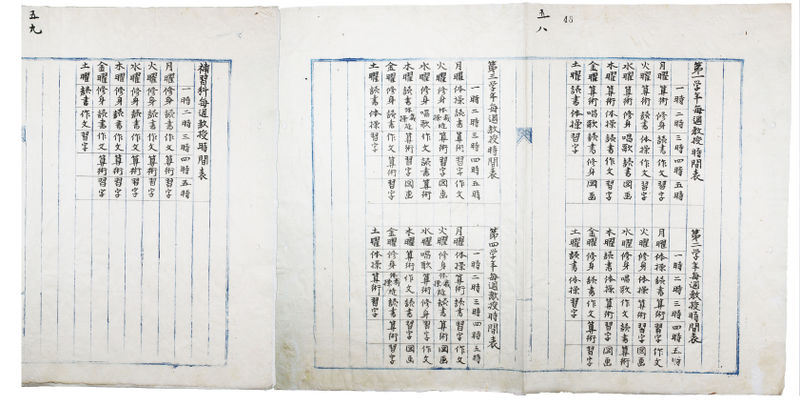 五八
48
第一学年毎週教授時間表
一時二時三時四時五時
月曜算術修身読書算術作文
火曜算術読書体操読書習字
水曜算術修身唱歌読書図画
木曜算術体操読書作文習字
金曜算術唱歌読書修身図画
土曜読書体操算術
第二学年毎週教授時間表
一時二時三時四時五時
月曜修身体操読書算術作文
火曜修身体操算術読書習字
水曜修身唱歌作文読書算術
木曜読書体操算術習字図画
金曜修身読書作文算術習字
土曜読書体操習字
第三学年毎週教授時間表
一時二時三時四時五時
月曜体操読書算術習字作文
火曜修身体操裁縫読書算術習字図画
水曜修身唱歌作文読書算術
木曜読書体操裁縫算術習字図画
金曜修身読書作文算術習字
土曜読書体操習字
第四学年毎週教授時間表
一時二時三時四時五時
月曜体操算術読書習字作文
火曜修身体操裁縫読書算術図画
水曜唱歌算術修身習字作文
木曜算術作文読書習字図画
金曜修身体操裁縫読書算術習字
土曜体操読書算術習字
五九
補習科毎週教授時間表
一時二時三時四時五時
月曜修身読書作文算術習字
火曜修身読書作文算術習字
水曜修身読書作文算術習字
木曜修身読書作文算術習字
金曜修身読書作文算術習字
土曜読書作文習字